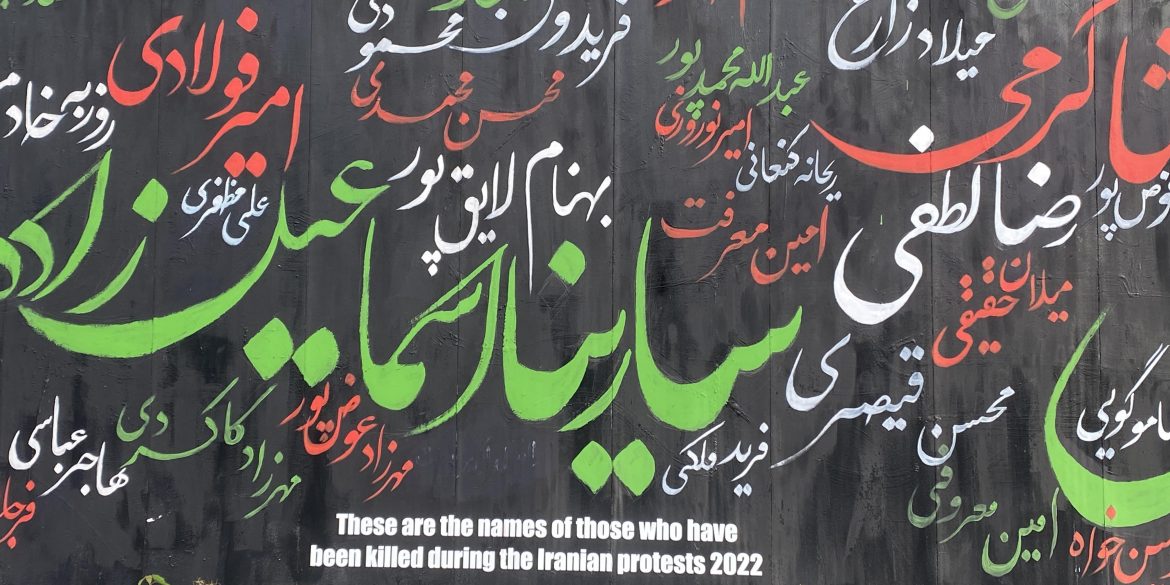 فریدون محمودی
میلاد زارع
امیر فولادی
محسن محمدی
عبدالله محمدپور
امیر نوروزی
روزبه خادم
ریحانه کنعانی
علی مظفری
بهنام لایق پور
رضا لطفی
عوض پور
امین معرفت
سارینا اسماعیل زاده
میلان حقیقی
قیصری
مهرزاد عوض پور
مهرزاد کاکردی
هاجر عباسی
فرید ملکی
محسن
اموگویی
امین معروفی
خواه
These are the names of those who have
been killed during the Iranian protests 2022